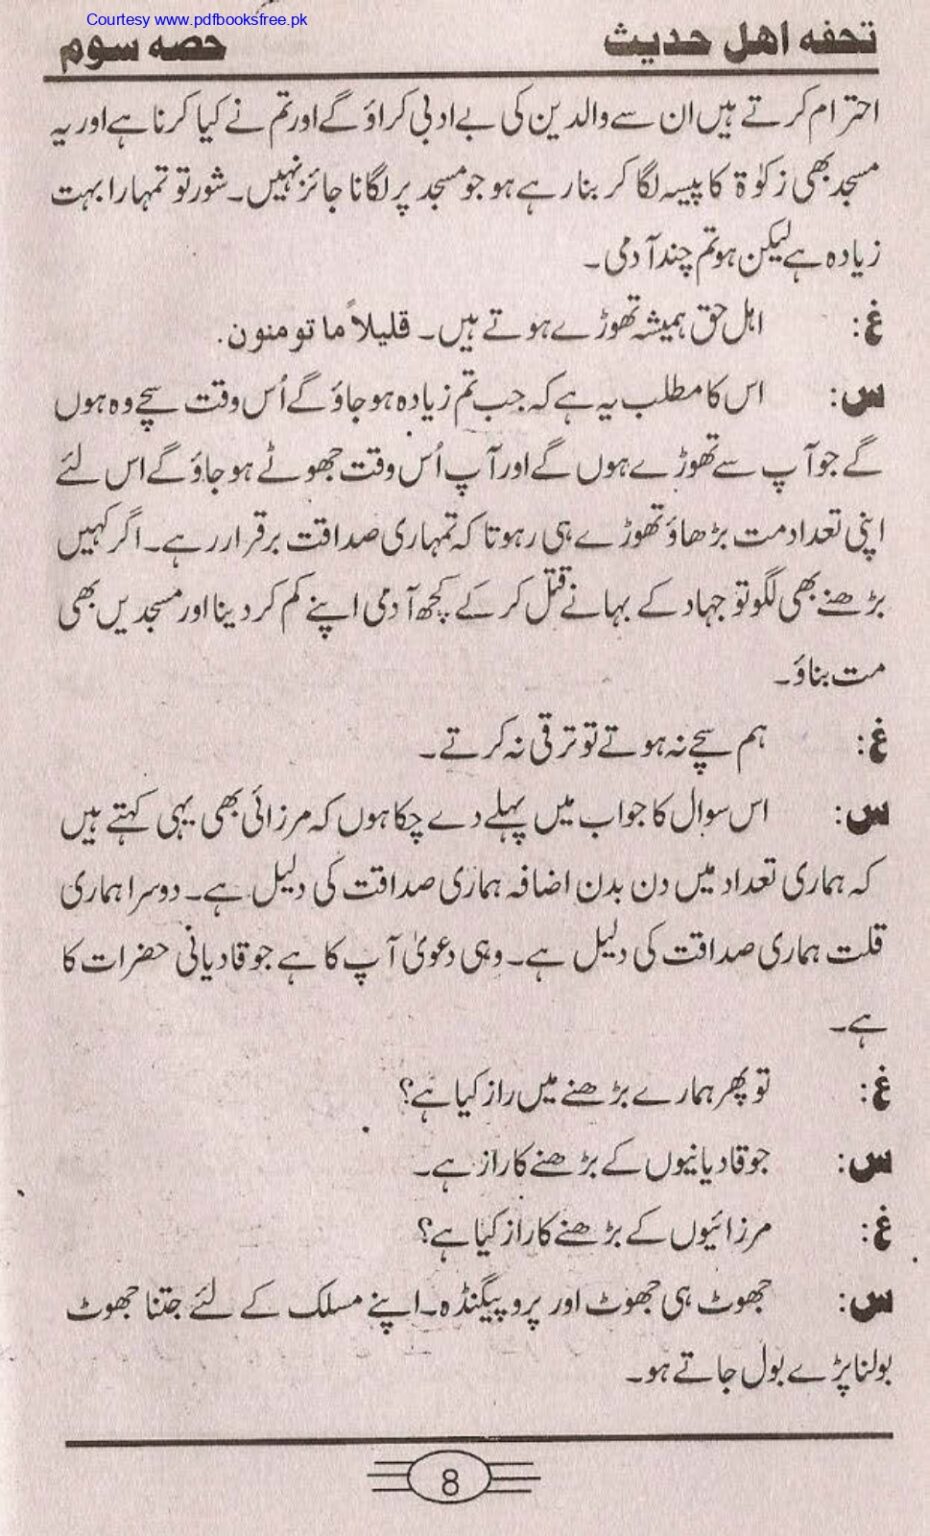 Courtesy www.pdfbooksfree.pk
تحفه اهل حدیث حصه سوم
احترام کرتے ہیں ان سے والدین کی بے ادبی کراؤ گے اور تم نے کیا کرنا ہے اور یہ
مسجد بھی زکوٰۃ کا پیسہ لگا کر بنا رہے ہو جو مسجد پر لگانا جائز نہیں۔ شور تو تمہارا بہت
زیادہ ہے لیکن ہو تم چند آدمی۔
غ: اہل حق ہمیشہ تھوڑے ہوتے ہیں۔ قليلاً ما تو منون.
س: اس کا مطلب یہ ہے کہ جب تم زیادہ ہو جاؤ گے اُس وقت سچے وہ ہوں
گے جو آپ سے تھوڑے ہوں گے اور آپ اُس وقت جھوٹے ہو جاؤ گے اس لئے
اپنی تعداد مت بڑھاؤ تھوڑے ہی رہو تا کہ تمہاری صداقت برقرار رہے۔ اگر کہیں
بڑھنے بھی لگو تو جہاد کے بہانے قتل کر کے کچھ آدمی اپنے کم کر دینا اور مسجدیں بھی
مت بناؤ۔
غ: ہم سچے نہ ہوتے تو ترقی نہ کرتے۔
س: اس سوال کا جواب میں پہلے دے چکا ہوں کہ مرزائی بھی یہی کہتے ہیں
کہ ہماری تعداد میں دن بدن اضافہ ہماری صداقت کی دلیل ہے۔ دوسرا ہماری
قلت ہماری صداقت کی دلیل ہے۔ وہی دعویٰ آپ کا ہے جو قادیانی حضرات کا
ہے۔
غ: تو پھر ہمارے بڑھنے میں راز کیا ہے؟
س: جو قادیانیوں کے بڑھنے کا راز ہے۔
غ: مرزائیوں کے بڑھنے کا راز کیا ہے؟
س: جھوٹ ہی جھوٹ اور پروپیگنڈہ۔ اپنے مسلک کے لئے جتنا جھوٹ
بولنا پڑے بول جاتے ہو۔
8